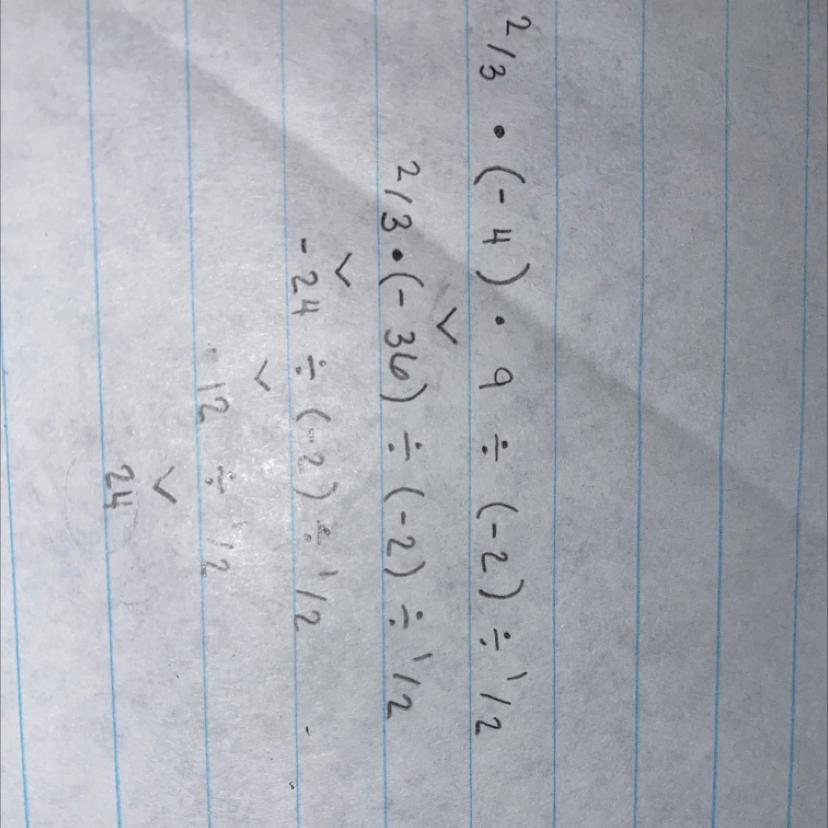 2/3 • (-4) • 9 ÷ (-2) ÷ 1/2
2/3 • (-36) ÷ (-2) ÷ 1/2
-24 ÷ (-2) ÷ 1/2
12 ÷ 1/2
24